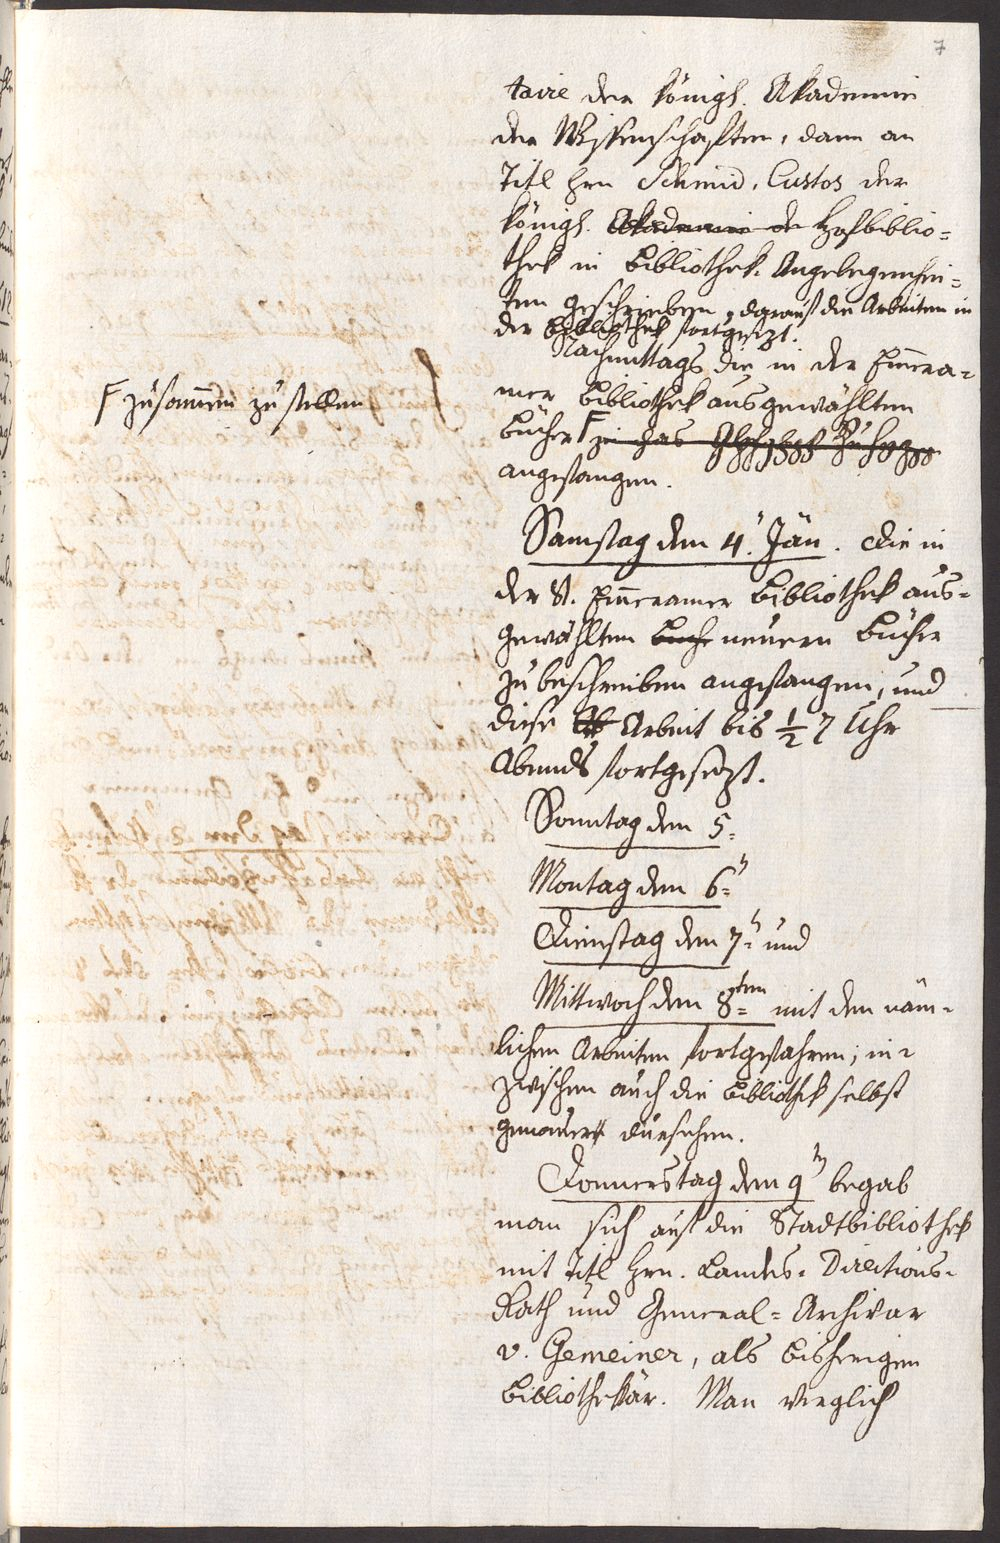 7
taire der königl. Akademie
der Wissenschaften, dann an
Titl Hrn Schmid, Custos der
königl. Akademie der Hofbiblio=
thek in Bibliothek. Angelegenhei=
ten geschrieben, darauf die Arbeiten in
der Bibliothek fortgesezt.
Nachmittags die in der Em̄era=
mer Bibliothek ausgewählten
Bücher ┌ zu das
┌ zusam̄en zu stellen
angefangen.
Samstag den 4. Jän. Die in
der St. Em̄eramer Bibliothek aus=
gewählten Buche neuern Bücher
zu beschreiben angefangen, und
diese Arbeit bis ½ 7 Uhr
Abends fortgesezt.
Sonntag den 5.
Montag den 6.n
Dienstag den 7.n und
Mittwoch den 8.ten mit den näm=
lichen Arbeiten fortgefahren; in=
zwischen auch die Bibliothek selbst
genauer dursehen.
Donnerstag den 9n begab
man sich auf die Stadtbibliothek
mit Titl Hrn. Landes=Directions=
Rath und General=Archivar
v. Gemeiner, als bisherigen
Bibliothekär. Man verglich